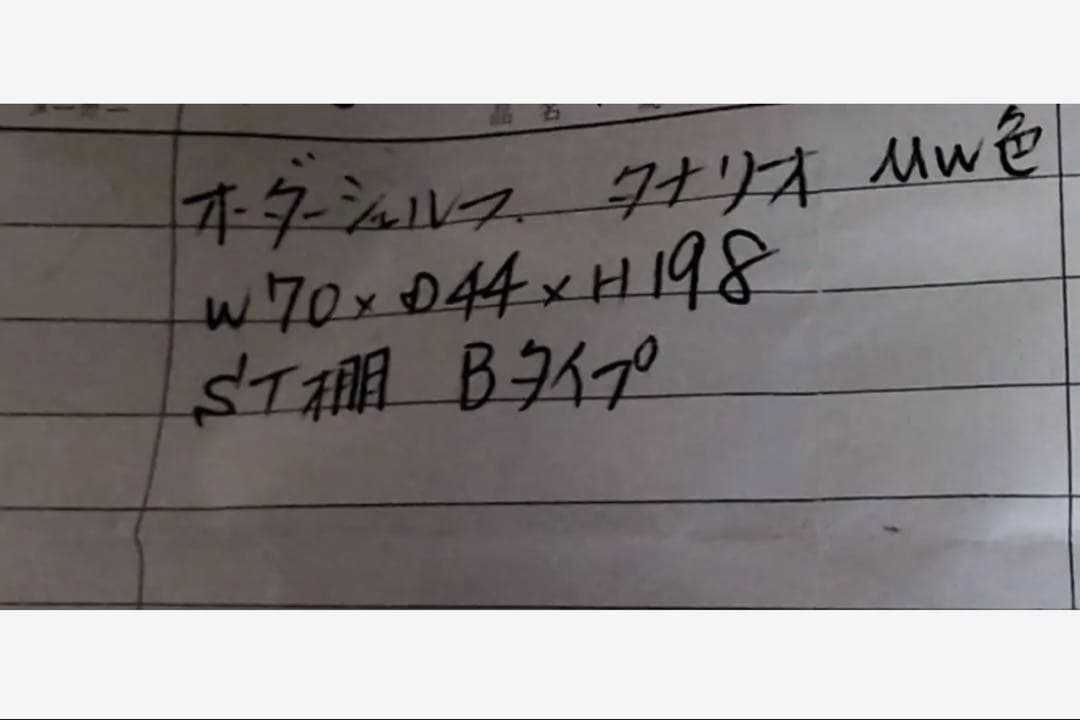 品名
オーダーシェルフ. タナリオ MW色
W70×D44×H198
ST棚 Bタイプ